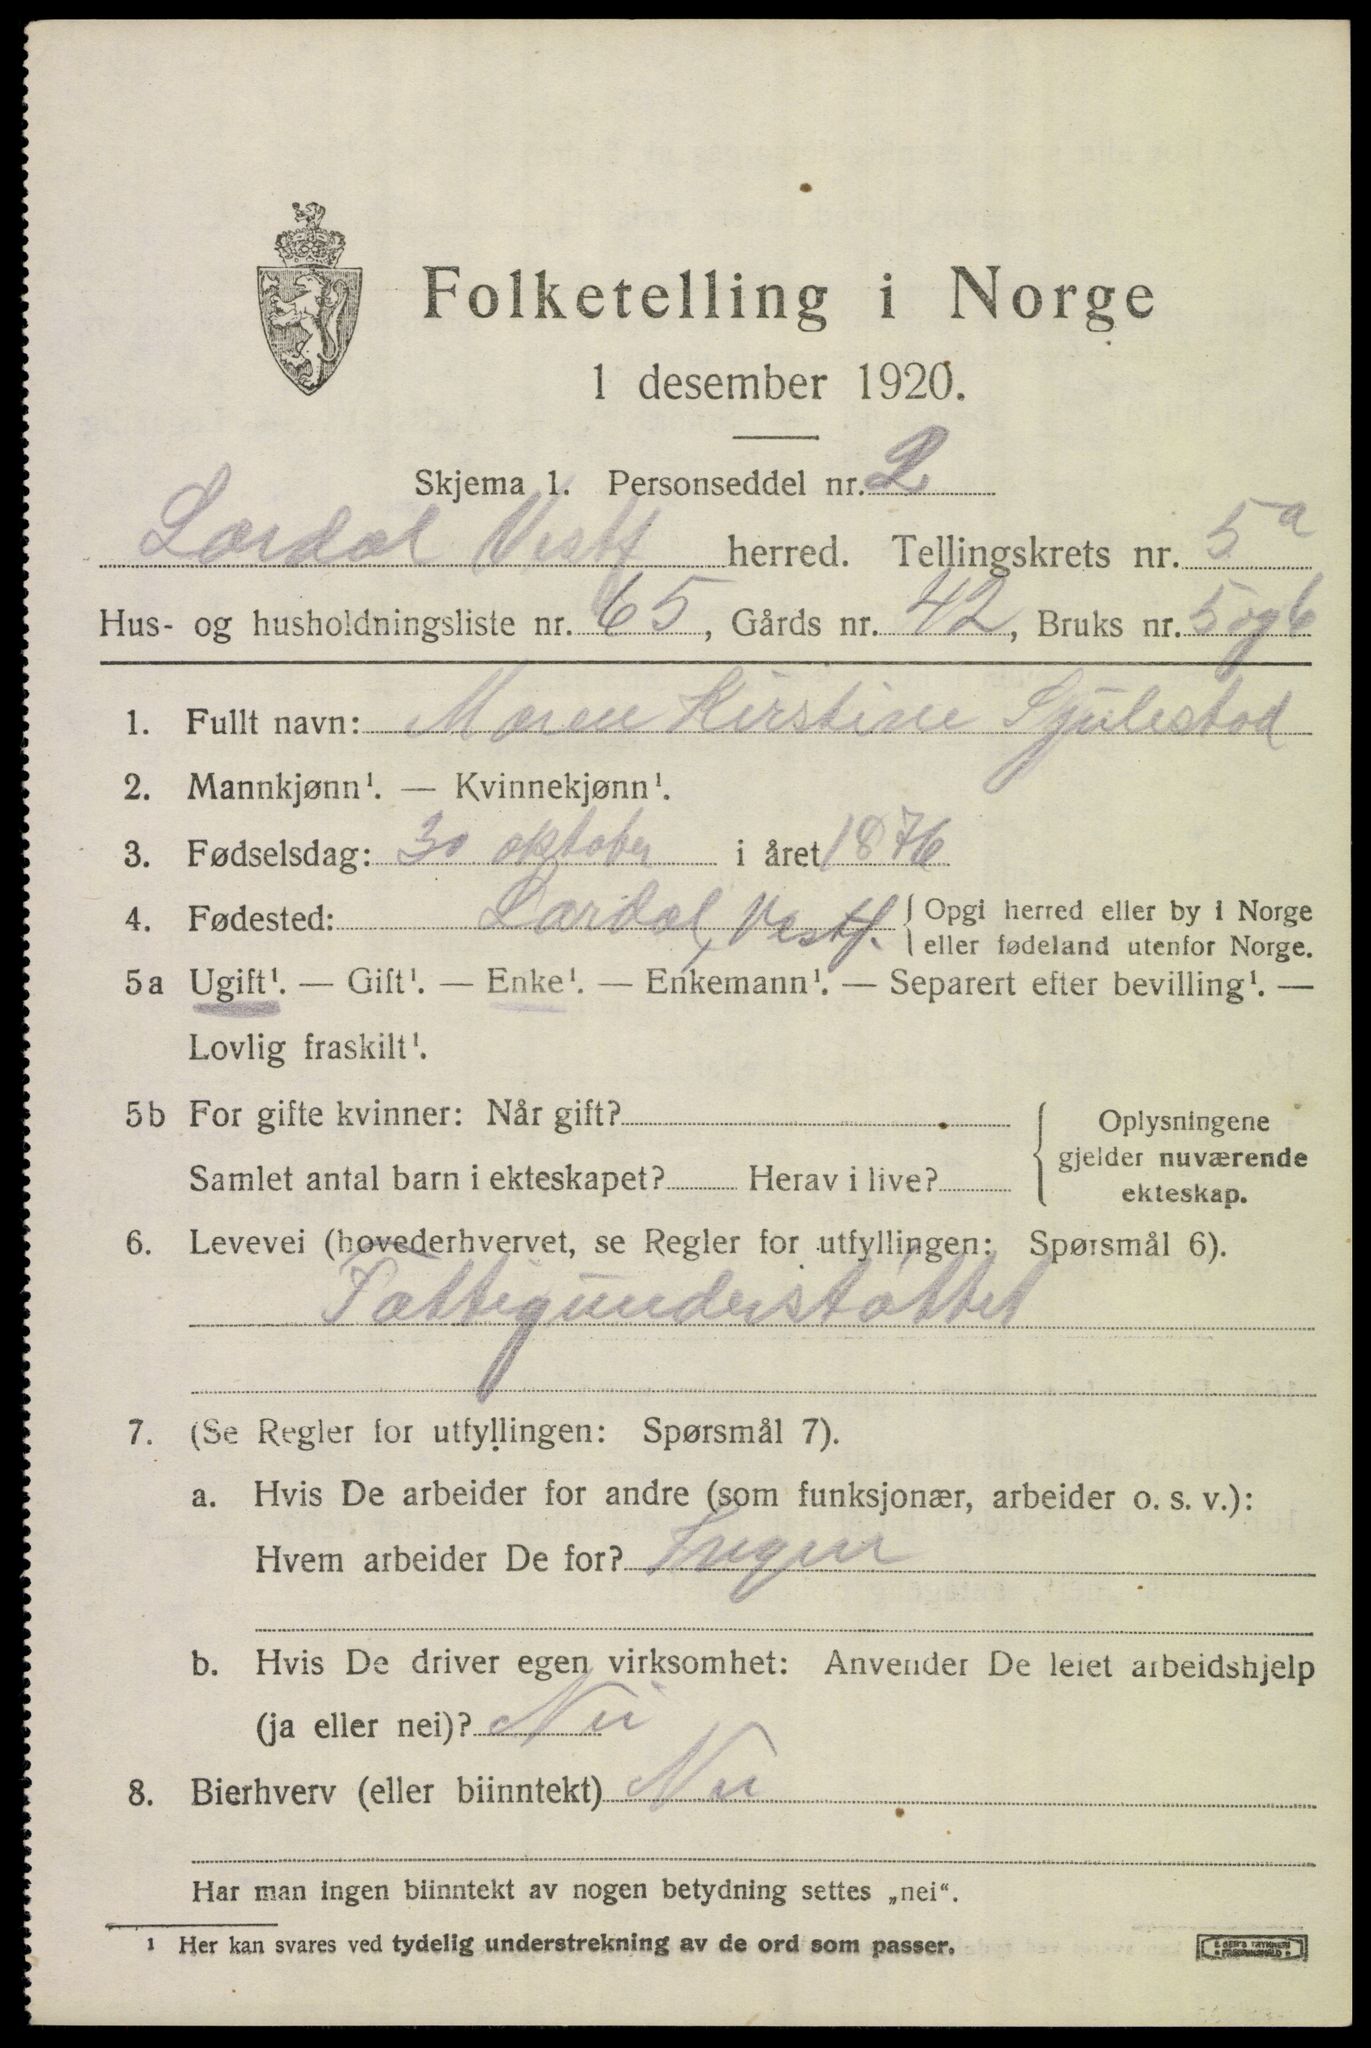 Folketelling i Norge
1 desember 1920.
Skjema 1. Personseddel nr. 2
Lardal Vestf herred. Tellingskrets nr. 5a
Hus- og husholdningsliste nr. 65, Gårds nr. 42, Bruks nr. 5 og 6
1. Fullt navn: Maren Kirstine Gjulestad
2. Mannkjønn¹. — Kvinnekjønn¹.
3. Fødselsdag: 30 oktober i året 1876
4. Fødested: Lardal, Vestf. { Opgi herred eller by i Norge
eller fødeland utenfor Norge.
5a Ugift¹. — Gift¹. — Enke¹. — Enkemann¹. — Separert efter bevilling¹. —
Lovlig fraskilt¹.
5b For gifte kvinner: Når gift?
Samlet antal barn i ekteskapet? Herav i live?
{ Oplysningene
gjelder nuværende
ekteskap.
6. Levevei (hovederhvervet, se Regler for utfyllingen: Spørsmål 6).
Fattigunderstøttet
7. (Se Regler for utfyllingen: Spørsmål 7).
a. Hvis De arbeider for andre (som funksjonær, arbeider o. s. v.):
Hvem arbeider De for? Ingen
b. Hvis De driver egen virksomhet: Anvender De leiet arbeidshjelp
(ja eller nei)? Nei
8. Bierhverv (eller biinntekt) Nei
Har man ingen biinntekt av nogen betydning settes „nei“.
¹ Her kan svares ved tydelig understrekning av de ord som passer.